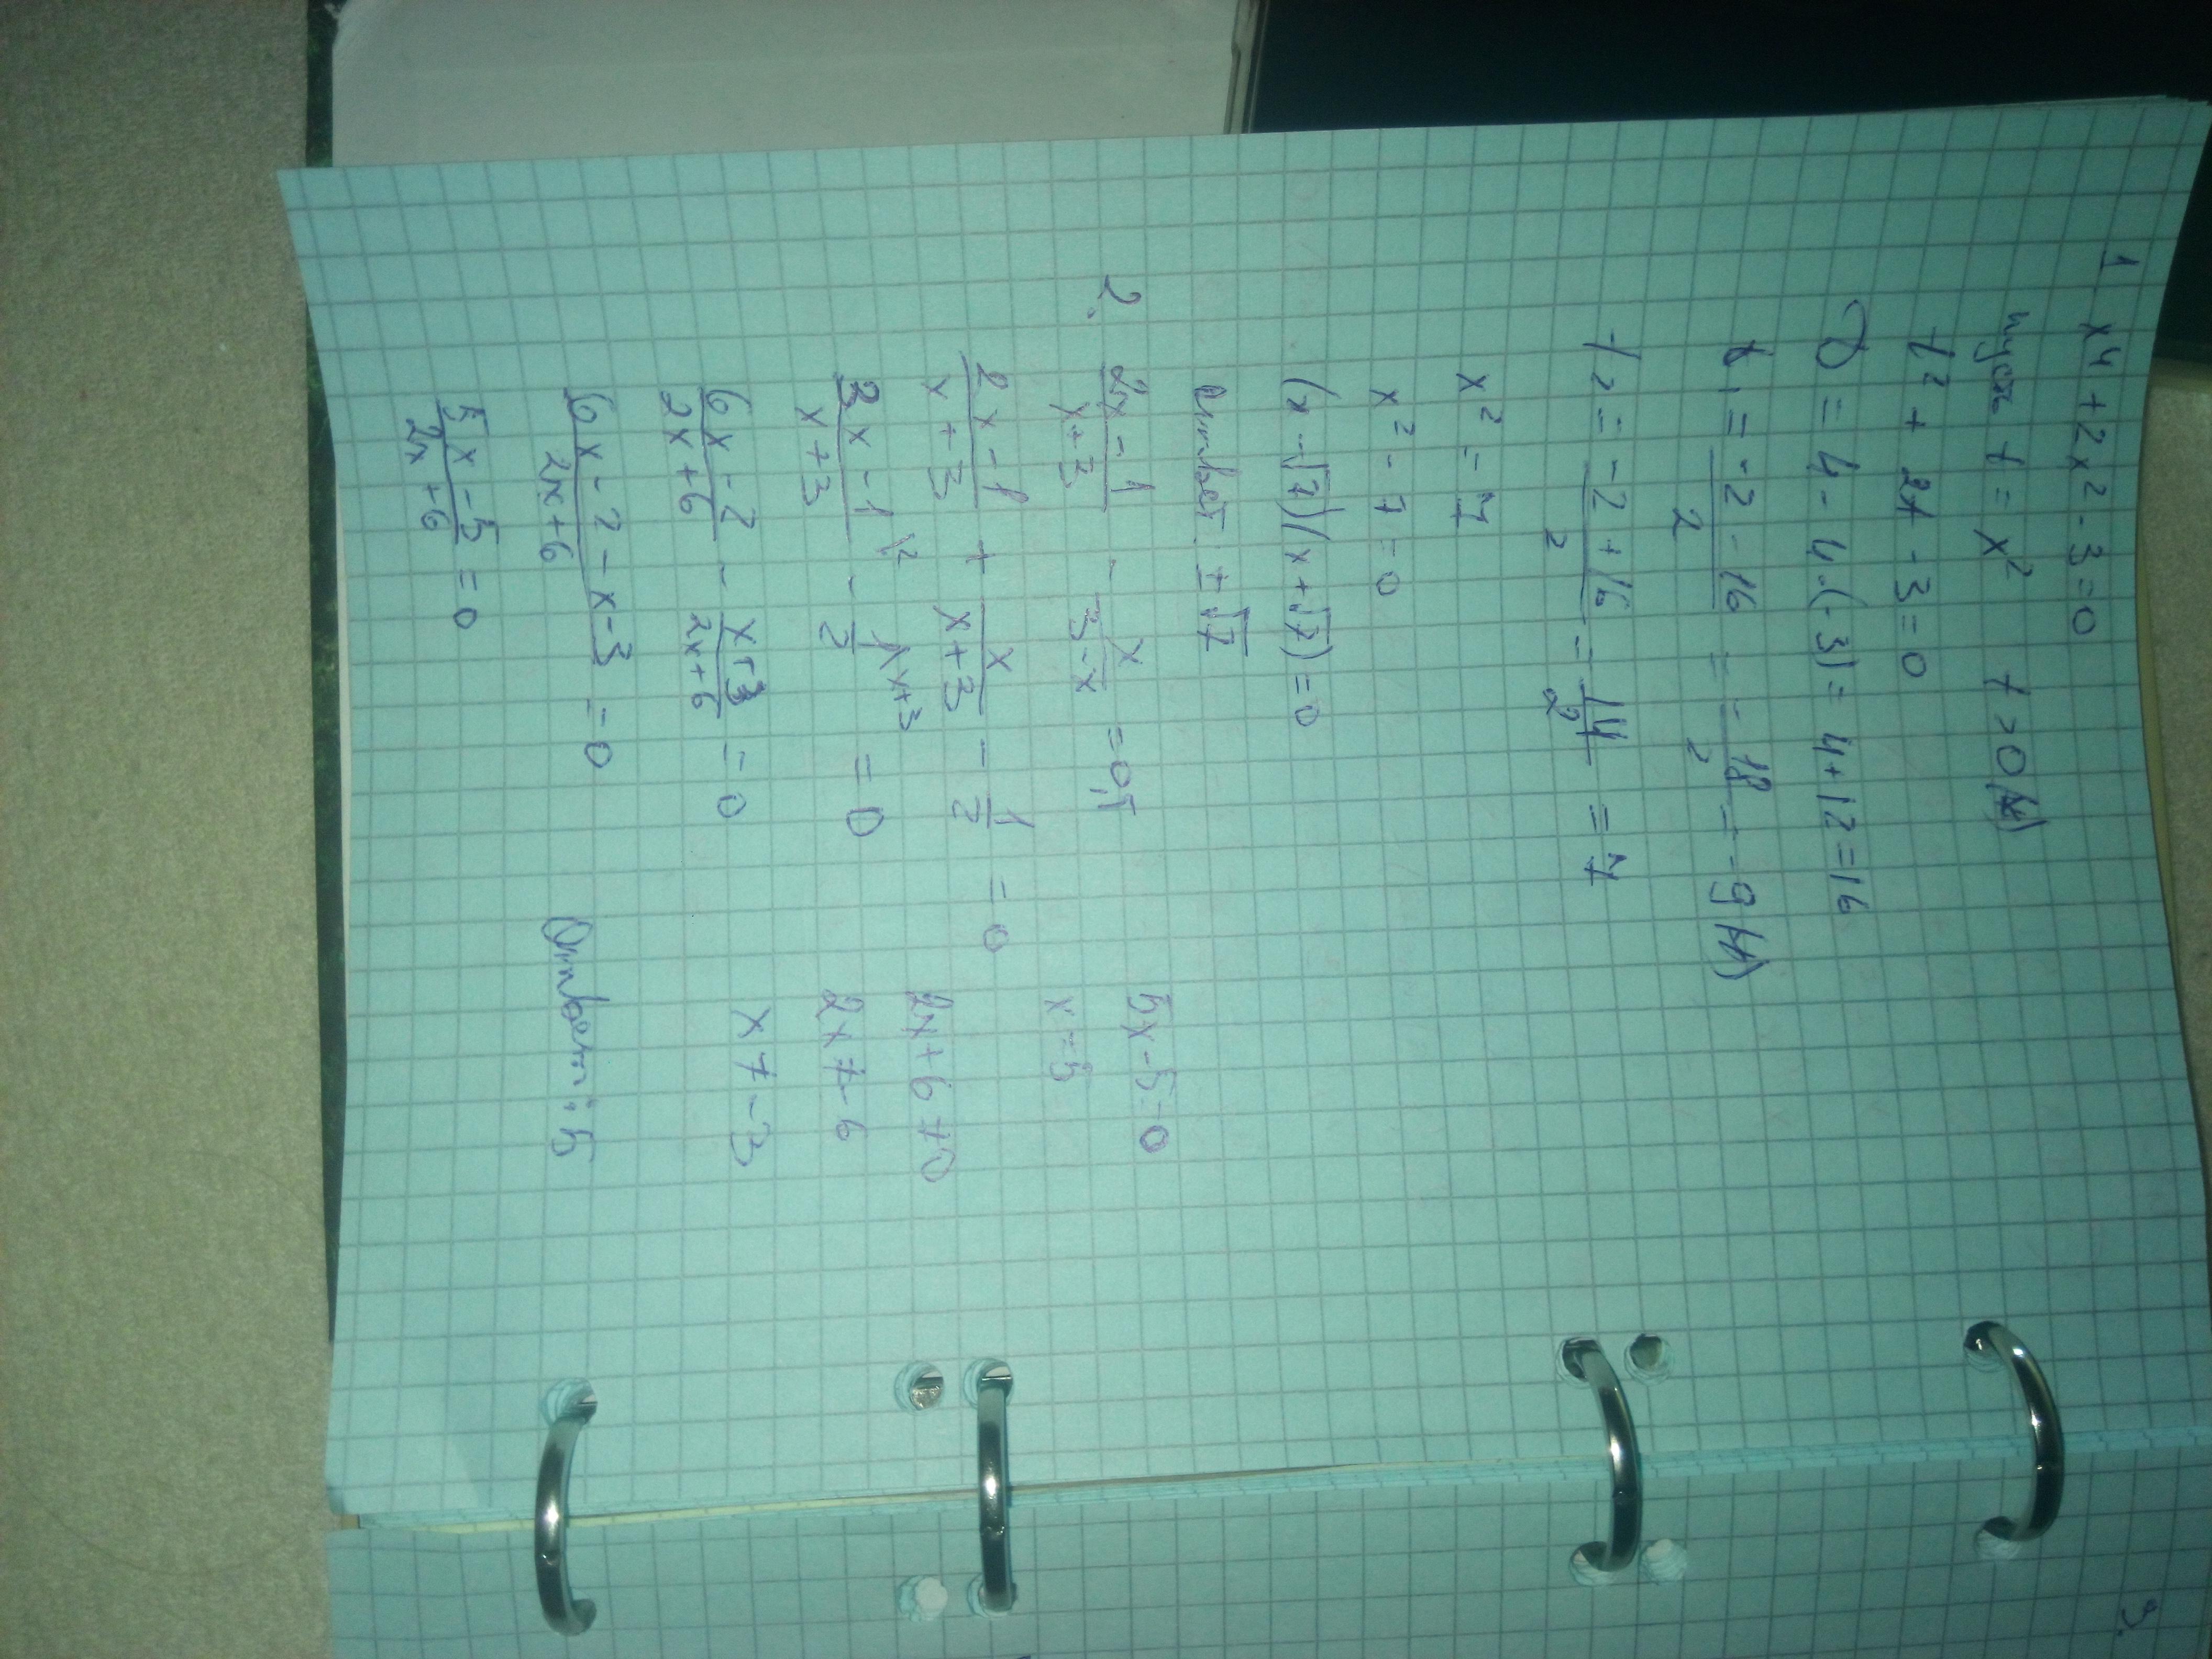 1. x⁴ + 2x² - 3 = 0
пусть t = x² t > 0
t² + 2t - 3 = 0
D = 4 - 4·(-3) = 4 + 12 = 16
t₁ = (-2 - 16)/2 = -18/2 = -9
t₂ = (-2 + 16)/2 = 14/2 = 7
x² = 7
x² - 7 = 0
(x - √7)(x + √7) = 0
Ответ: ±√7
2. (2x - 1)/(x + 3) - x/(3 - x) = 0,5
(2x - 1)/(x + 3) + x/(x + 3) - 1/2 = 0
(3x - 1)/(x + 3) \2 - 1/2 \x+3 = 0
(6x - 2)/(2x + 6) - (x + 3)/(2x + 6) = 0
(6x - 2 - x - 3)/(2x + 6) = 0
(5x - 5)/(2x + 6) = 0
5x - 5 = 0
x = 5
2x + 6 ≠ 0
2x ≠ -6
x ≠ -3
Ответ: 5
3.